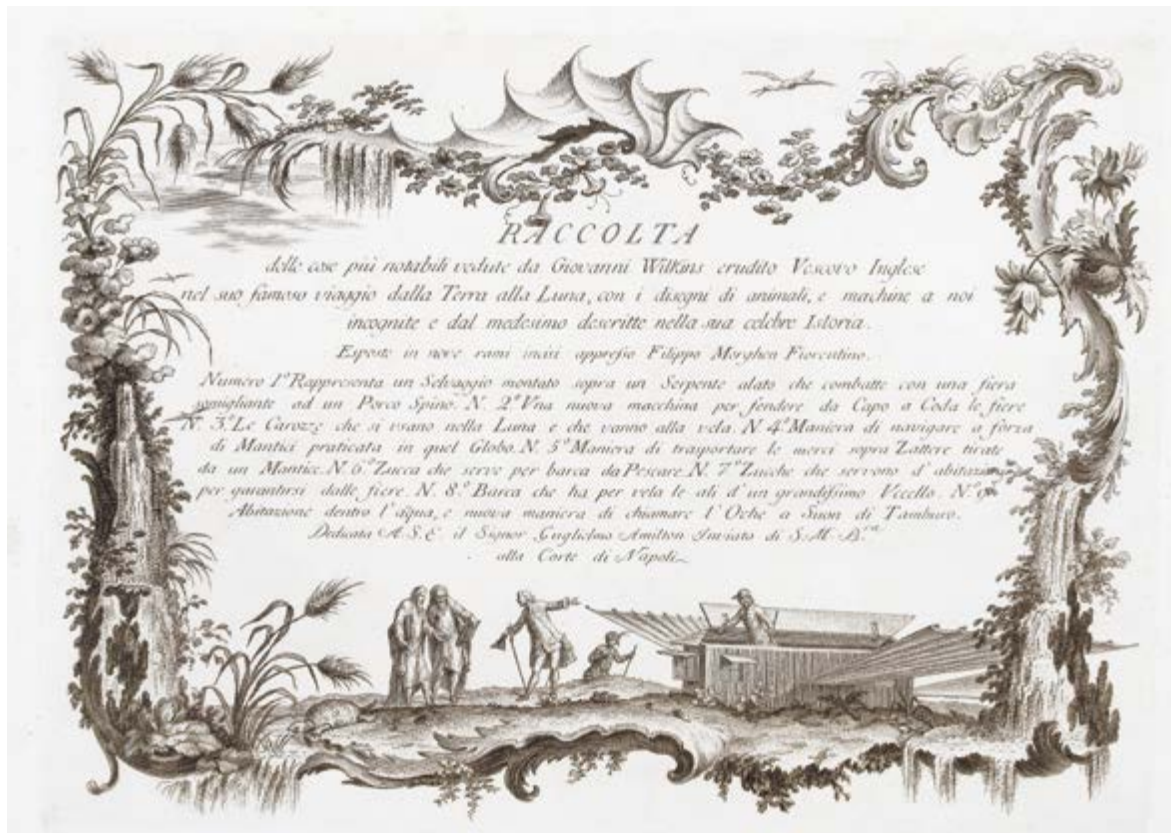 RACCOLTA
delle cose più notabili vedute da Giovanni Wilkins erudito Vescovo Inglese
nel suo famoso viaggio dalla Terra alla Luna, con i disegni di animali, e machine a noi
incognite e dal medesimo descritte nella sua celebre Istoria.
Esposte in nove rami incisi appresso Filippo Morghen Fiorentino.
Numero 1º Rappresenta un Selvaggio montato sopra un Serpente alato che combatte con una fiera
somigliante ad un Porco Spino. N. 2º Vna nuova macchina per fendere da Capo a Coda le fiere
N. 3º Le Carozze che si usano nella Luna e che vanno alla vela. N. 4º Maniera di navigare a forza
di Mantici praticata in quel Globo. N. 5º Maniera di trasportare le merci sopra Zattere tirate
da un Mantice. N. 6º Zucca che serve per barca da Pescare. N. 7º Zucche che servono d'abitazione
per garantirsi dalle fiere. N. 8º Barca che ha per vela le ali d'un grandissimo Vccello. N. 9º
Abitazione dentro l'acqua, e nuova maniera di chiamare l'Oche a Suon di Tamburo.
Dedicata A. S. E. il Signor Guglielmo Amilton Inviato di S. M. B.
alla Corte di Napoli